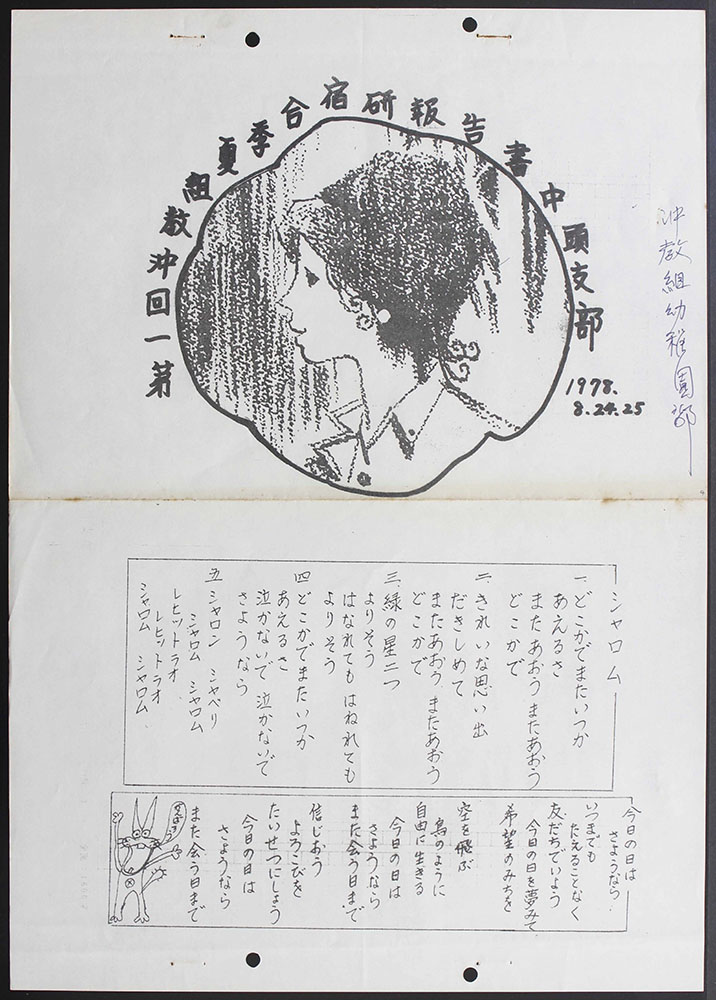 第一回沖教組夏季合宿研報告書中頭支部
1978.
8.24.25
沖教組幼稚園部
シャロム
一、どこかでまたいつか
あえるさ
またあおう またあおう
どこかで
二、きれいな思い出
だきしめて
またあおう またあおう
どこかで
三、緑の星二つ
よりそう
はなれても はねれても
よりそう
四 どこかでまたいつか
あえるさ
泣かないで 泣かないで
さようなら
五 シャロン シャベリ
シャロム シャロム
レヒットラオ
レヒットラオ
シャロム シャロム
今日の日は
さようなら
いつまでも
たえることなく
友だちでいよう
今日の日を夢みて
希望のみちを
空を飛ぶ
鳥のように
自由に生きる
今日の日は
さようなら
また会う日まで
信じあう
よろこびを
たいせつにしよう
今日の日は
さようなら
また会う日まで